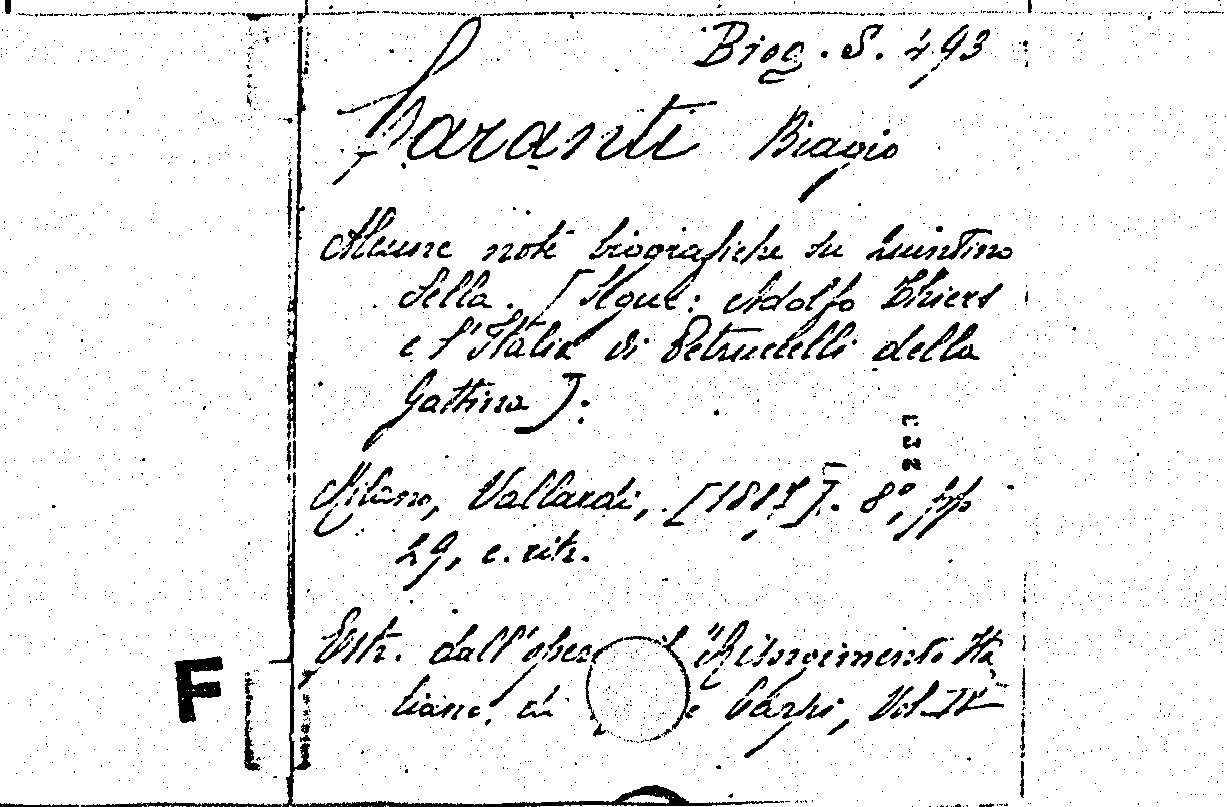 Biog. S. 493
Caranti Biagio
Alcune note biografiche su Quintino
Sella. [Segue: Adolfo Thiers
e l'Italia di Petruccelli della
Gattina].
Milano, Vallardi, [1887]. 8°, pp
29, c. ritr.
Estr. dall'oper "Risorgimento Ita
liano, di e Carpi, Vol. IV
F